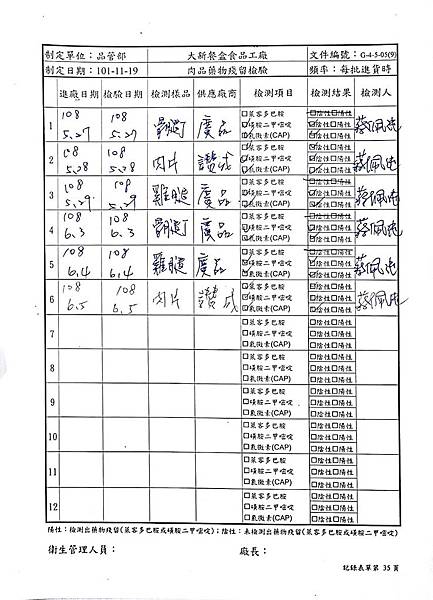 制定單位：品管部 大新餐盒食品工廠 文件編號：G-4-5-05(9)
制定日期：101-11-19 肉品藥物殘留檢驗 頻率：每批進貨時
進廠日期 檢驗日期 檢測樣品 供應廠商 檢測項目 檢測結果 檢測人
1 108 5.27 108 5.27 廣品 □萊客多巴胺 □陰性□陽性 蔡佩
□磺胺二甲嘧啶 □陰性□陽性
□氯黴素(CAP) □陰性□陽性
2 108 5.28 108 5.28 肉片 讚成 □萊客多巴胺 □陰性□陽性 蔡佩
□磺胺二甲嘧啶 □陰性□陽性
□氯黴素(CAP) □陰性□陽性
3 108 5.29 108 5.29 雞腿 廣品 □萊客多巴胺 □陰性□陽性 蔡佩
□磺胺二甲嘧啶 □陰性□陽性
□氯黴素(CAP) □陰性□陽性
4 108 6.3 108 6.3 廣品 □萊客多巴胺 □陰性□陽性 蔡佩
□磺胺二甲嘧啶 □陰性□陽性
□氯黴素(CAP) □陰性□陽性
5 108 6.4 108 6.4 雞腿 廣品 □萊客多巴胺 □陰性□陽性 蔡佩
□磺胺二甲嘧啶 □陰性□陽性
□氯黴素(CAP) □陰性□陽性
6 108 6.5 108 6.5 肉片 讚成 □萊客多巴胺 □陰性□陽性 蔡佩
□磺胺二甲嘧啶 □陰性□陽性
□氯黴素(CAP) □陰性□陽性
7 □萊客多巴胺 □陰性□陽性
□磺胺二甲嘧啶 □陰性□陽性
□氯黴素(CAP) □陰性□陽性
8 □萊客多巴胺 □陰性□陽性
□磺胺二甲嘧啶 □陰性□陽性
□氯黴素(CAP) □陰性□陽性
9 □萊客多巴胺 □陰性□陽性
□磺胺二甲嘧啶 □陰性□陽性
□氯黴素(CAP) □陰性□陽性
10 □萊客多巴胺 □陰性□陽性
□磺胺二甲嘧啶 □陰性□陽性
□氯黴素(CAP) □陰性□陽性
11 □萊客多巴胺 □陰性□陽性
□磺胺二甲嘧啶 □陰性□陽性
□氯黴素(CAP) □陰性□陽性
12 □萊客多巴胺 □陰性□陽性
□磺胺二甲嘧啶 □陰性□陽性
□氯黴素(CAP) □陰性□陽性
陽性：檢測出藥物殘留(萊客多巴胺或磺胺二甲嘧啶)；陰性：未檢測出藥物殘留(萊客多巴胺或磺胺二甲嘧啶)
衛生管理人員： 廠長：
記錄表單第 35 頁